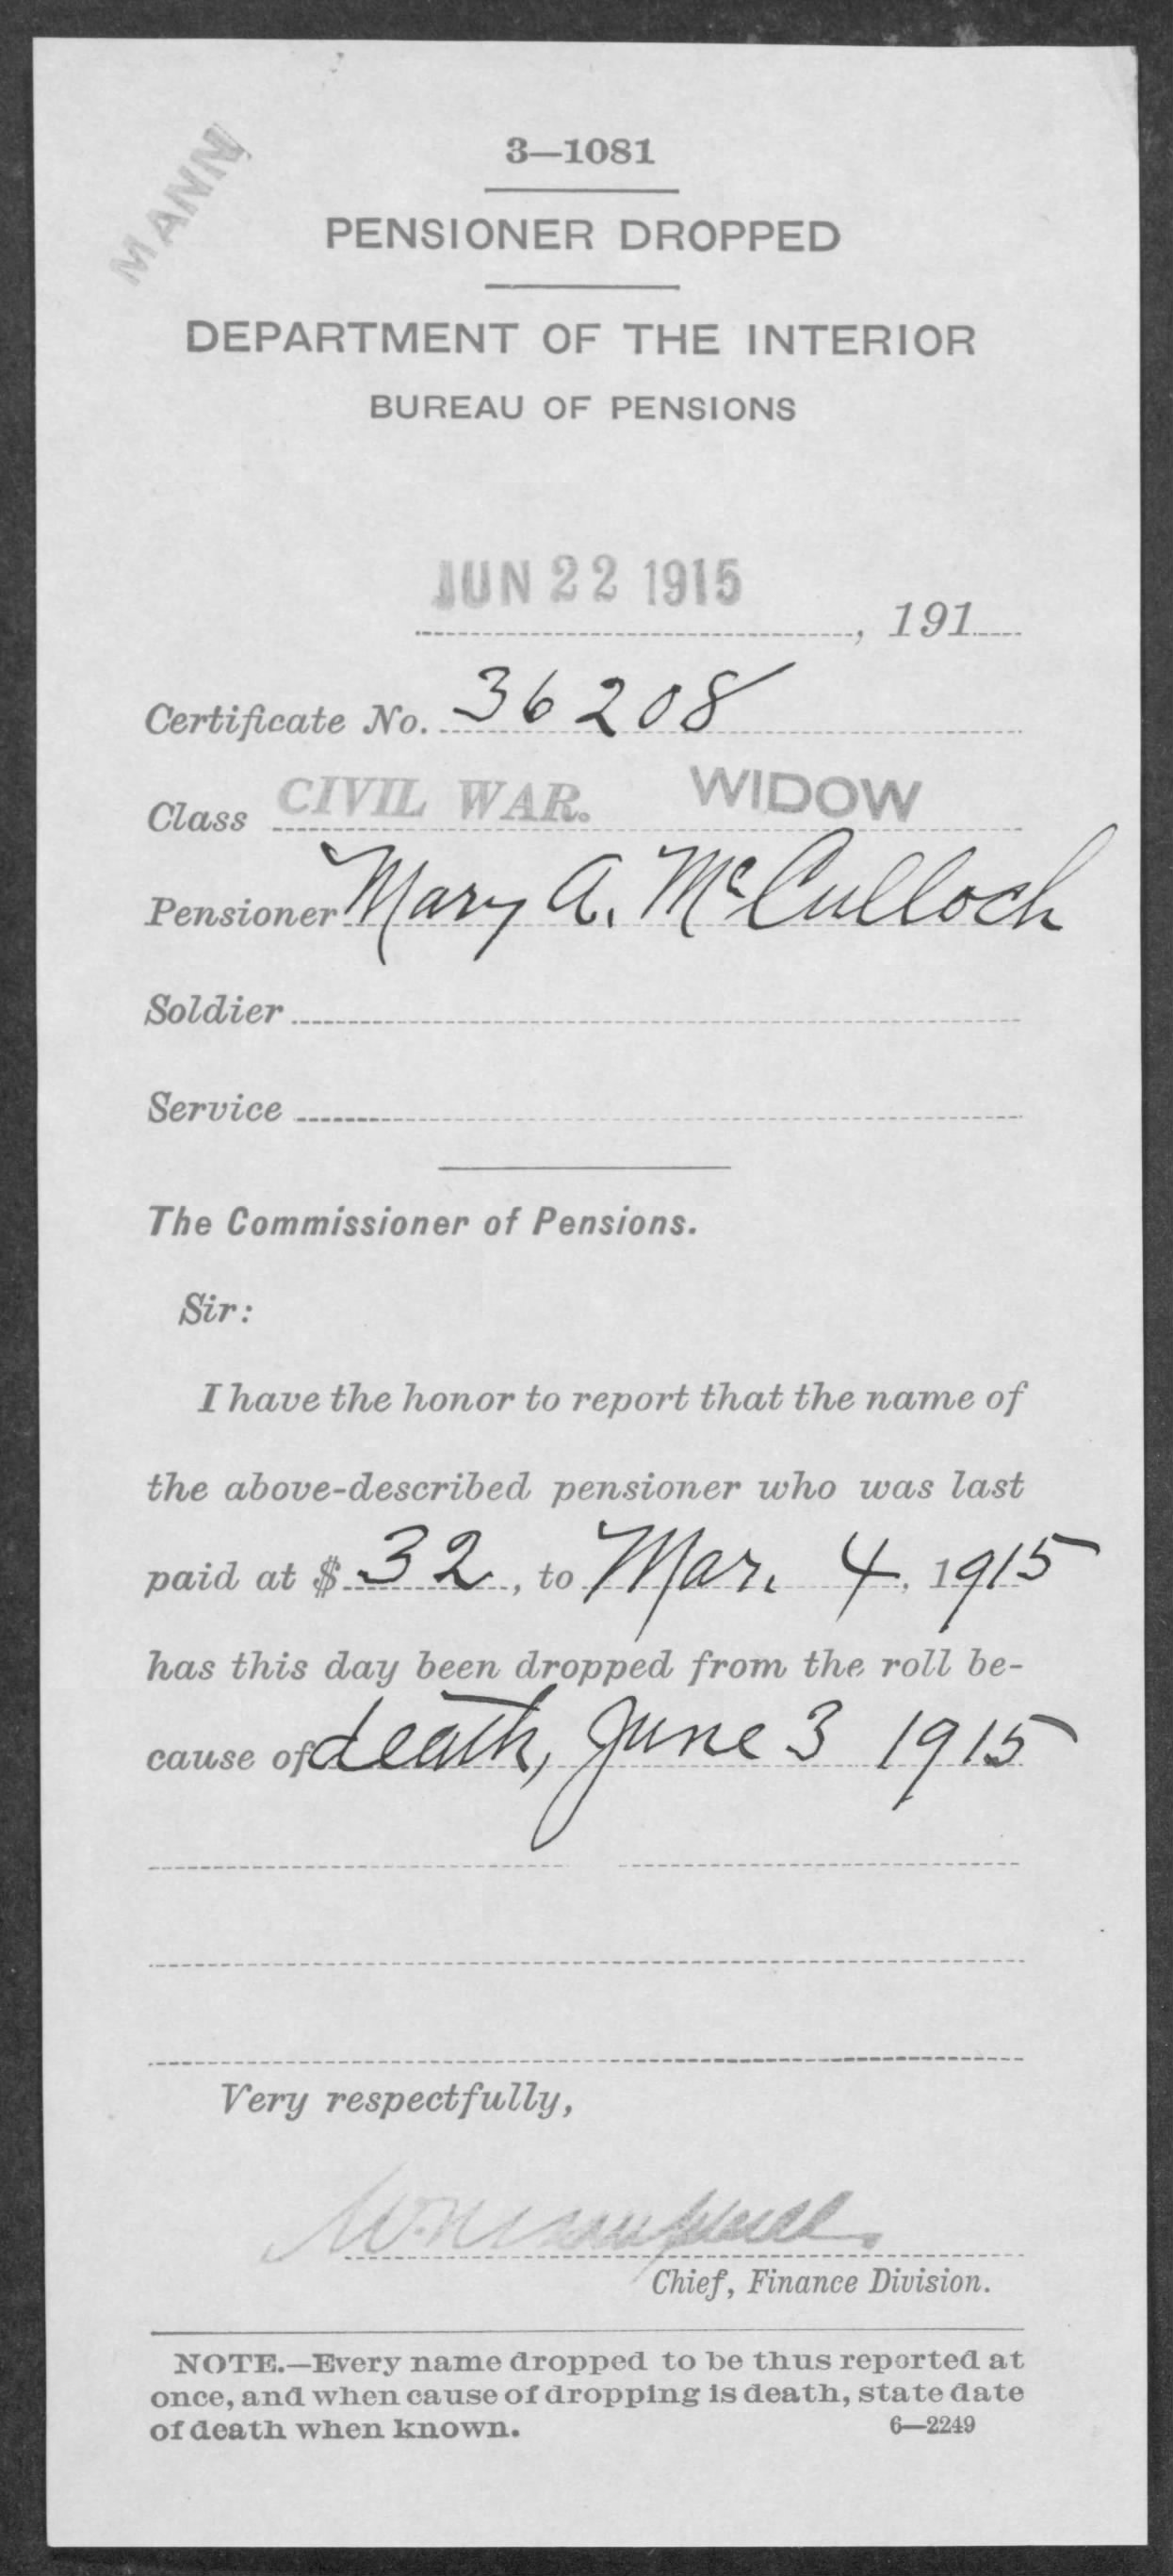 MANN
3—1081
PENSIONER DROPPED
DEPARTMENT OF THE INTERIOR
BUREAU OF PENSIONS
JUN 22 1915
, 191
Certificate No. 36208
Class CIVIL WAR. WIDOW
Pensioner Mary A. McCulloch
Soldier
Service
The Commissioner of Pensions.
Sir:
I have the honor to report that the name of
the above-described pensioner who was last
paid at $ 32, to Mar. 4, 1915
has this day been dropped from the roll be-
cause of death, June 3 1915
Very respectfully,
Chief, Finance Division.
NOTE.—Every name dropped to be thus reported at
once, and when cause of dropping is death, state date
of death when known. 6—2249